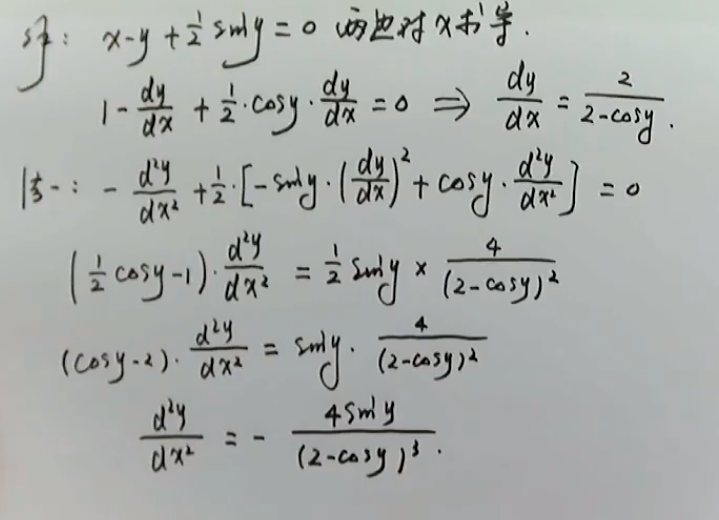 解: x-y+\frac{1}{2}siny=0 两边对x求导.
1-\frac{dy}{dx}+\frac{1}{2}·cosy·\frac{dy}{dx}=0 ⇒ \frac{dy}{dx}=\frac{2}{2-cosy}.
-\frac{d²y}{dx²}+\frac{1}{2}·[-siny·(\frac{dy}{dx})²+cosy·\frac{d²y}{dx²}]=0
(\frac{1}{2}cosy-1)·\frac{d²y}{dx²}=\frac{1}{2}siny×\frac{4}{(2-cosy)²}
(cosy-2)·\frac{d²y}{dx²}=siny·\frac{4}{(2-cosy)²}
\frac{d²y}{dx²}=-\frac{4siny}{(2-cosy)³}.